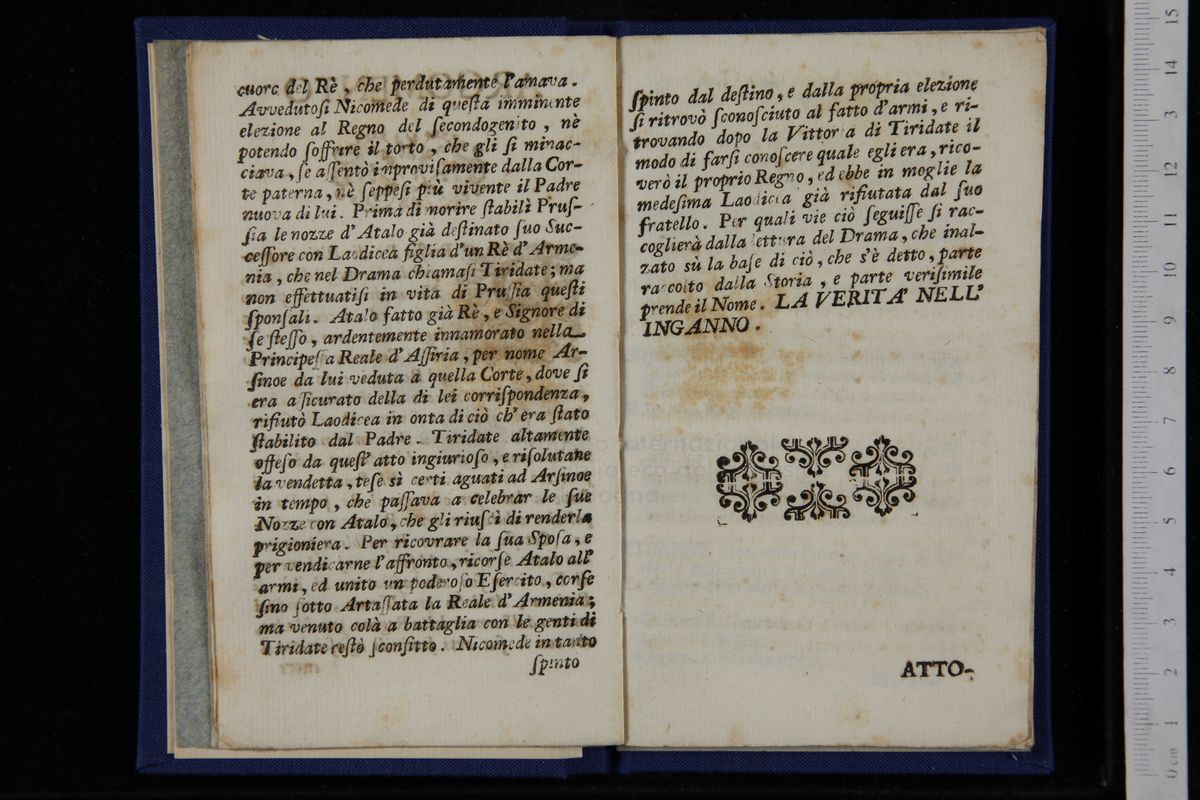 cuore del Rè, che perdutamente l'amava.
Avvedutosi Nicomede di queſta imminente
elezione al Regno del ſecondogenito, nè
potendo ſoffrire il torto, che gli ſi minac-
ciava, ſe aſſentò improviſamente dalla Cor-
te paterna, nè ſeppeſi più vivente il Padre
nuova di lui. Prima di morire ſtabilì Pruſ-
ſia le nozze d'Atalo già deſtinato ſuo Suc-
ceſſore con Laodicea figlia d'un Rè d'Arme-
nia, che nel Drama chiamaſi Tiridate; ma
non effettuatiſi in vita di Pruſſia queſti
ſponſali. Atalo fatto già Rè, e Signore di
ſe ſteſſo, ardentemente innamorato nella
Principeſſa Reale d'Aſſiria, per nome Ar-
ſinoe da lui veduta a quella Corte, dove ſi
era aſſicurato della di lei corriſpondenza,
rifiutò Laodicea in onta di ciò ch'era ſtato
ſtabilito dal Padre. Tiridate altamente
offeſo da queſt'atto ingiurioſo, e riſolutane
la vendetta, teſe sì certi aguati ad Arſinoe
in tempo, che paſſava a celebrar le ſue
Nozze con Atalo, che gli riuſcì di renderla
prigioniera. Per ricovrare la ſua Spoſa, e
per vendicarne l'affronto, ricorſe Atalo all'
armi, ed unito un poderoſo Eſercito, corſe
ſino ſotto Artaſſata la Reale d'Armenia;
ma venuto colà a battaglia con le genti di
Tiridate reſtò ſconfitto. Nicomede in tanto
ſpinto
ſpinto dal deſtino, e dalla propria elezione
ſi ritrovò ſconoſciuto al fatto d'armi, e ri-
trovando dopo la Vittoria di Tiridate il
modo di farſi conoſcere quale egli era, rico-
verò il proprio Regno, ed ebbe in moglie la
medeſima Laodicea già rifiutata dal ſuo
fratello. Per quali vie ciò ſeguiſſe ſi rac-
coglierà dalla lettura del Drama, che inal-
zato sù la baſe di ciò, che s'è detto, parte
raccolto dalla Storia, e parte veriſimile
prende il Nome. LA VERITA' NELL'
INGANNO.
ATTO-